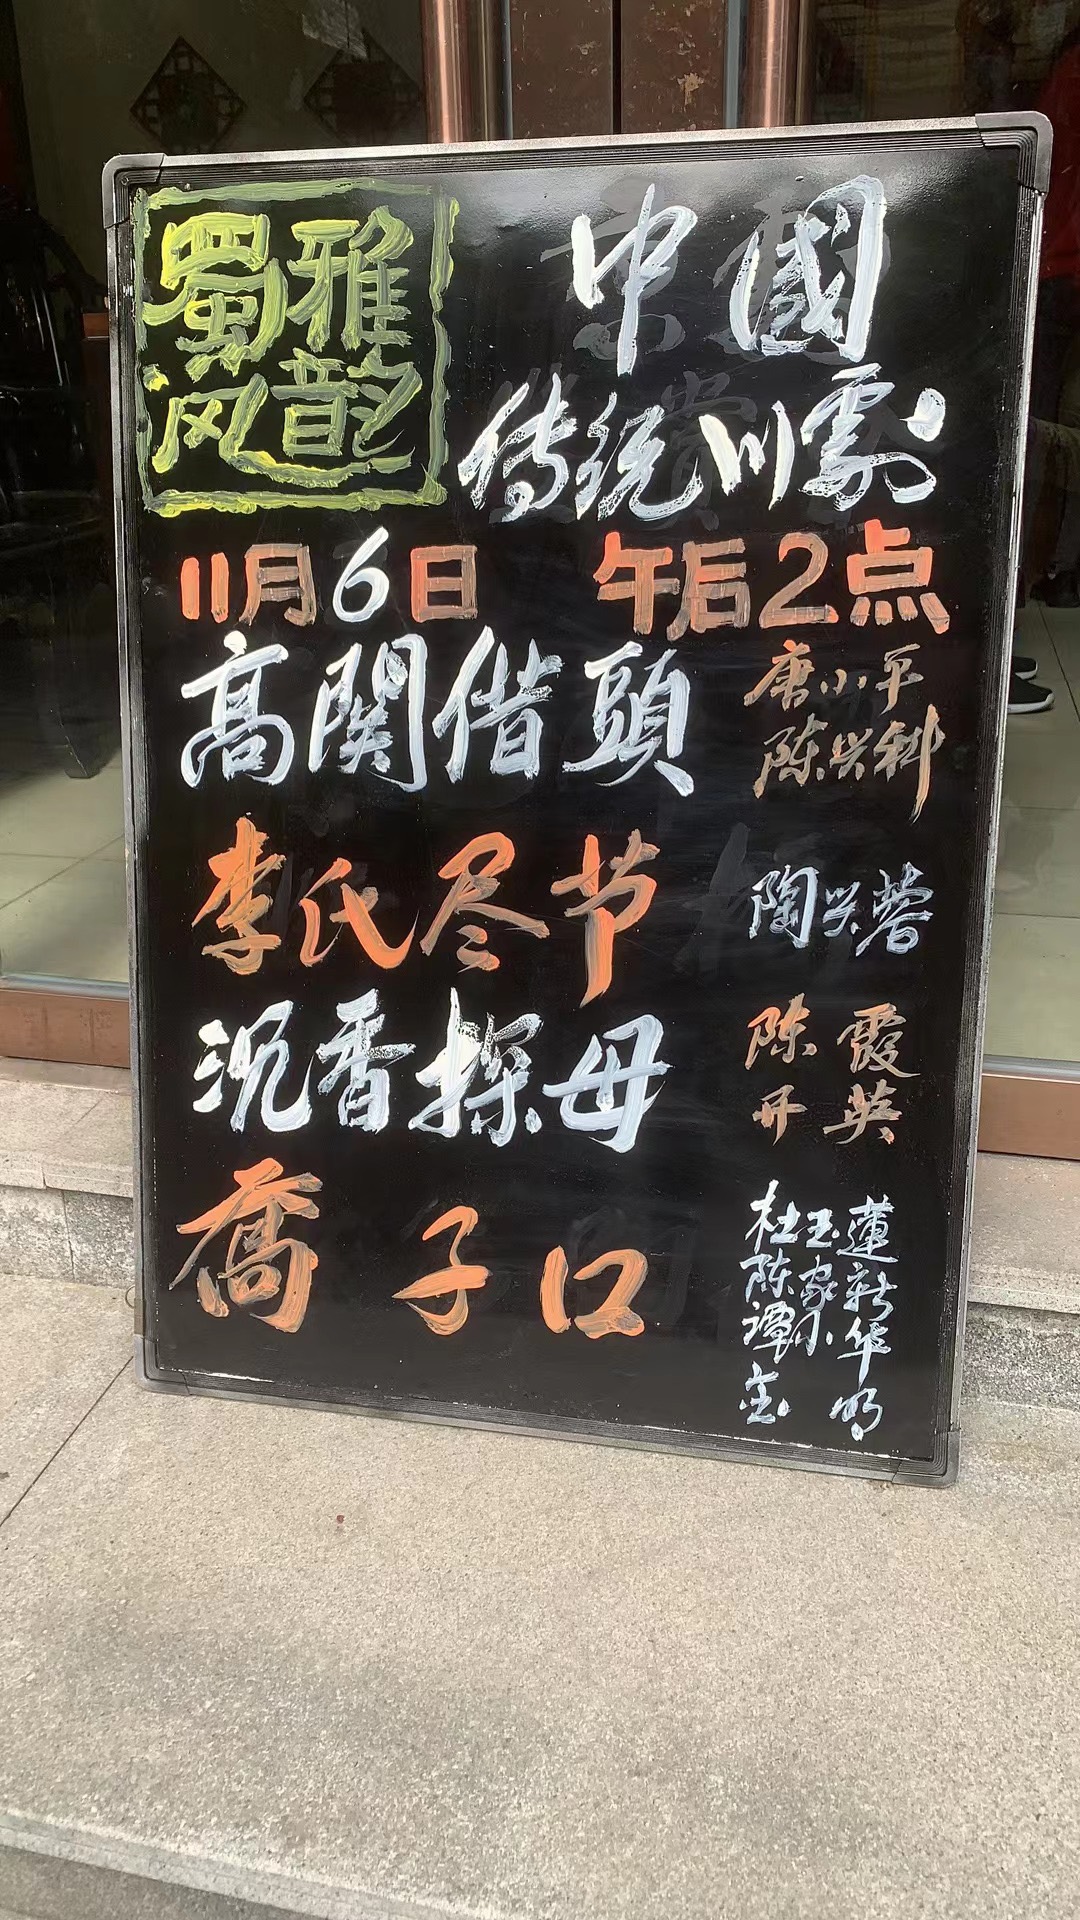 蜀雅
风韵
中國
传统川劇
11月6日 午后2点
高関借頭 唐小平
陈兴科
李氏尽节 陶兴蓉
沉香探母 陈霞
开英
喬子口 杜玉蓮
陈家新
谭小华